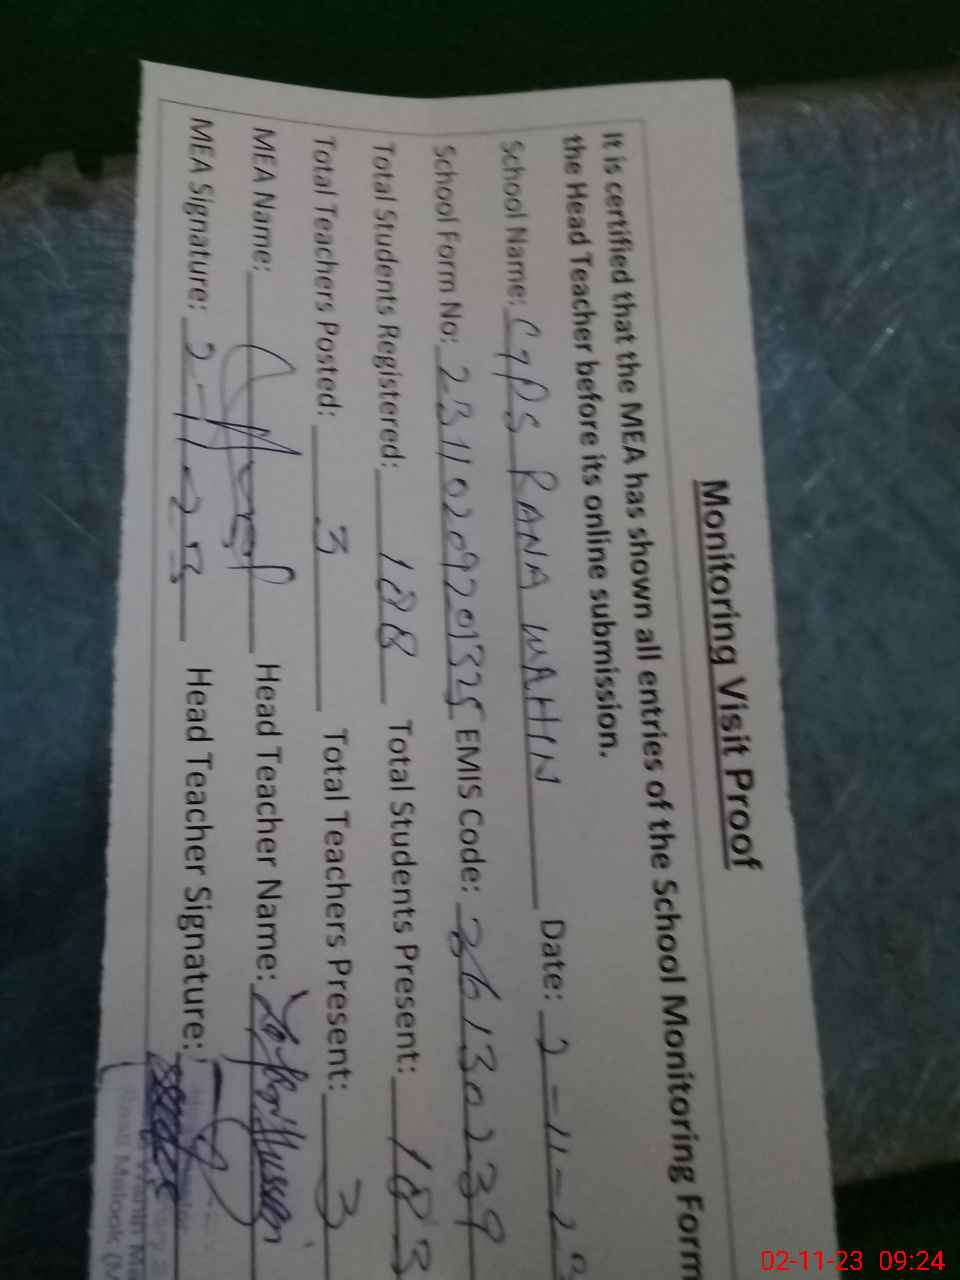 Monitoring Visit Proof
It is certified that the MEA has shown all entries of the School Monitoring Form
the Head Teacher before its online submission.
School Name: GPS RANA WAHIN Date: 2-11-2
School Form No: 231102097201325 EMIS Code: 36130239
Total Students Registered: 188 Total Students Present: 183
Total Teachers Posted: 3 Total Teachers Present: 3
MEA Name: Head Teacher Name: Hussain
MEA Signature: 2-11-23 Head Teacher Signature:
02-11-23 09:24